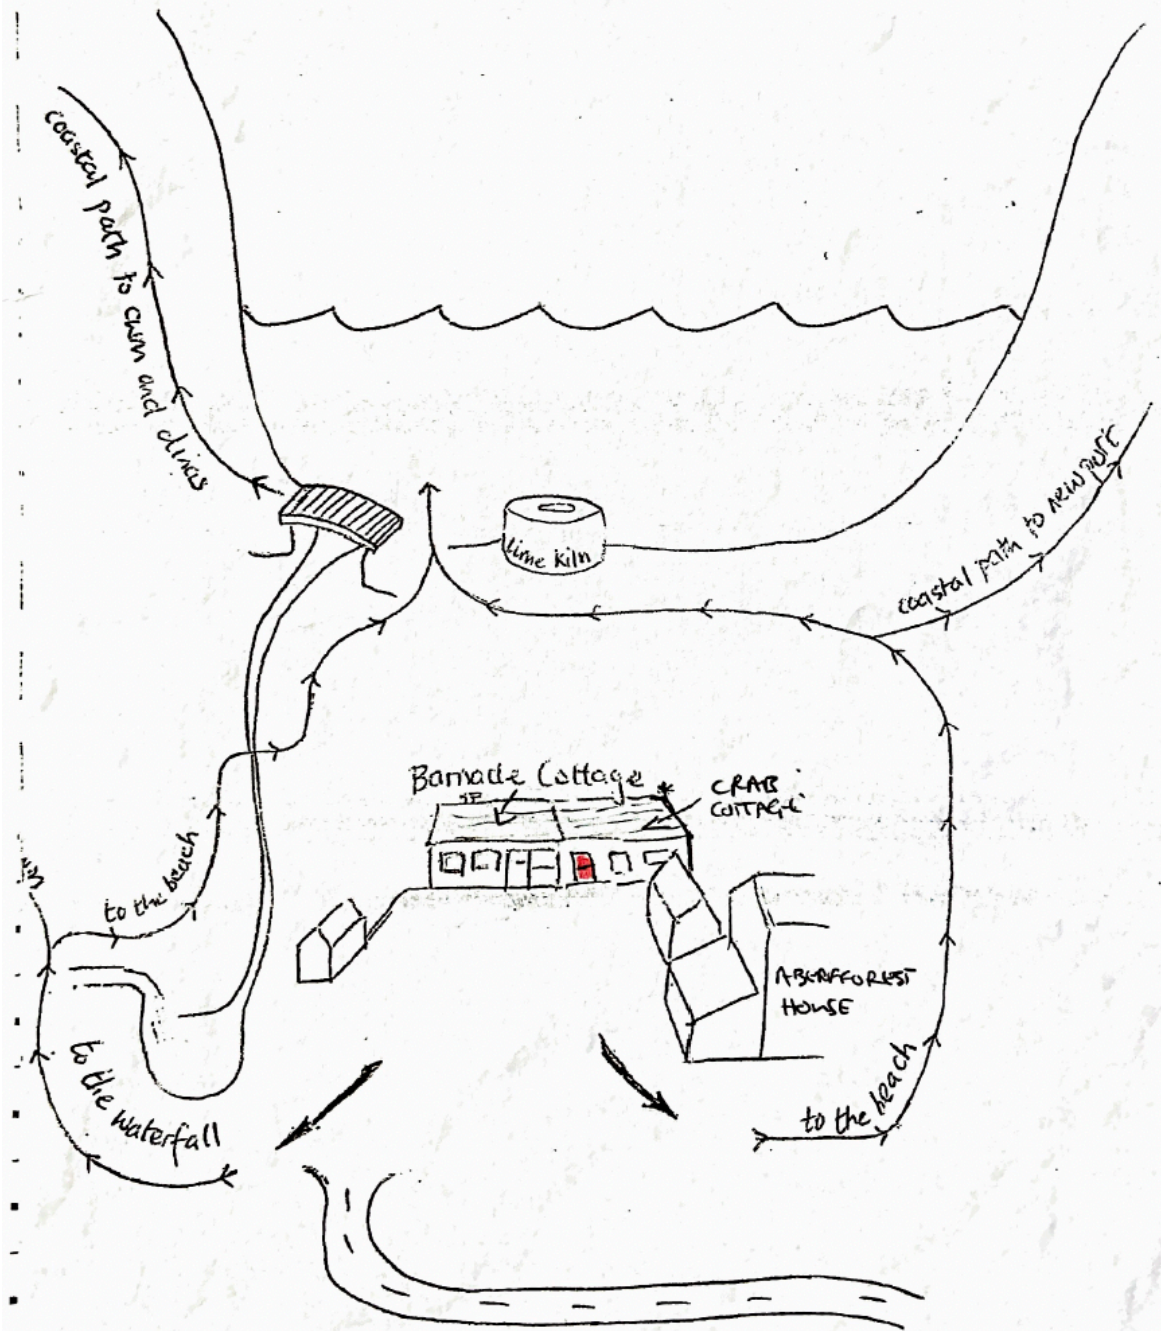 coastal path to cwm and dinas
Lime Kiln
coastal path to newport
Barnacle Cottage
CRAB
COTTAGE
to the beach
ABERFFOREST
HOUSE
to the waterfall
to the beach